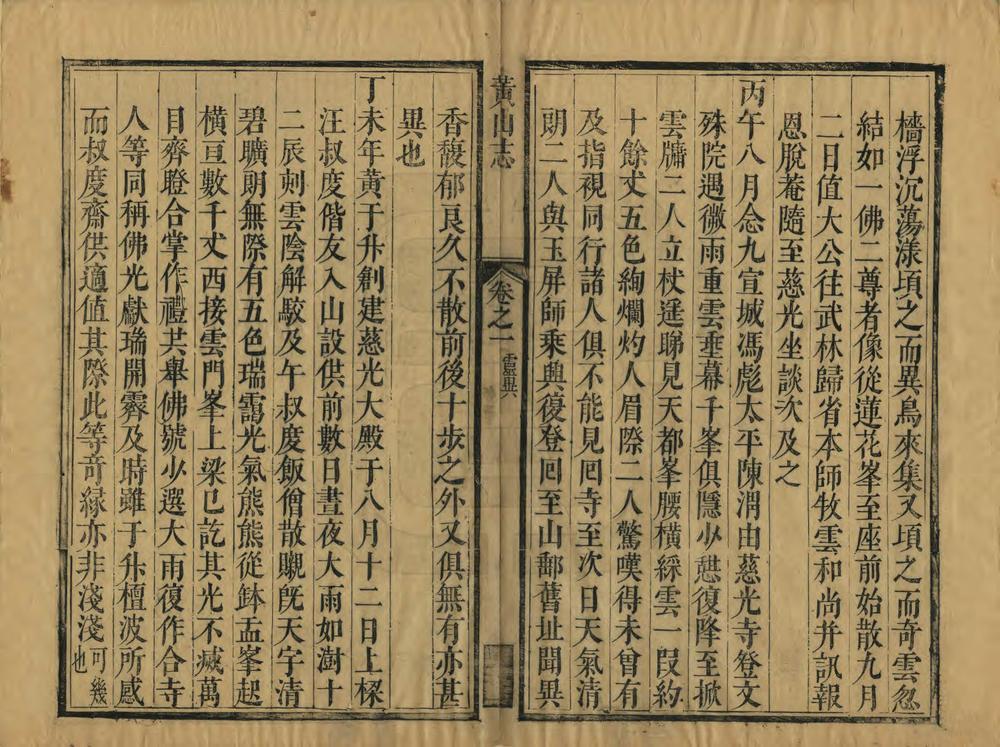 檣浮沉蕩漾頃之而異鳥來集又頃之而奇雲忽
結如一佛二尊者像從蓮花峯至座前始散九月
二日值大公往武林歸省本師牧雲和尚并訊報
恩脫菴隨至慈光坐談次及之
丙午八月念九宣城馮彪太平陳渭由慈光寺登文
殊院遇微雨重雲垂幕千峯俱隱少憇復降至掀
雲牗二人立杖遥睇見天都峯腰橫綵雲一叚約
十餘丈五色絢爛灼人眉際二人驚嘆得未曾有
及指視同行諸人俱不能見囘寺至次日天氣清
朗二人與玉屏師乘興復登囘至山鄣舊址聞異
黃山志
卷之一 靈異
香馥郁良久不散前後十步之外又俱無有亦甚
異也
丁未年黃于升創建慈光大殿于八月十二日上樑
汪叔度偕友入山設供前數日晝夜大雨如澍十
二辰刻雲陰解駮及午叔度飯僧散䞋既天宇清
碧曠朗無際有五色瑞靄光氣熊熊從鉢盂峯起
橫亘數千丈西接雲門峯上梁已訖其光不滅萬
目齊瞪合掌作禮共舉佛號少選大雨復作合寺
人等同稱佛光獻瑞開霽及時雖于升檀波所感
而叔度齋供適值其際此等奇緣亦非淺淺可幾也